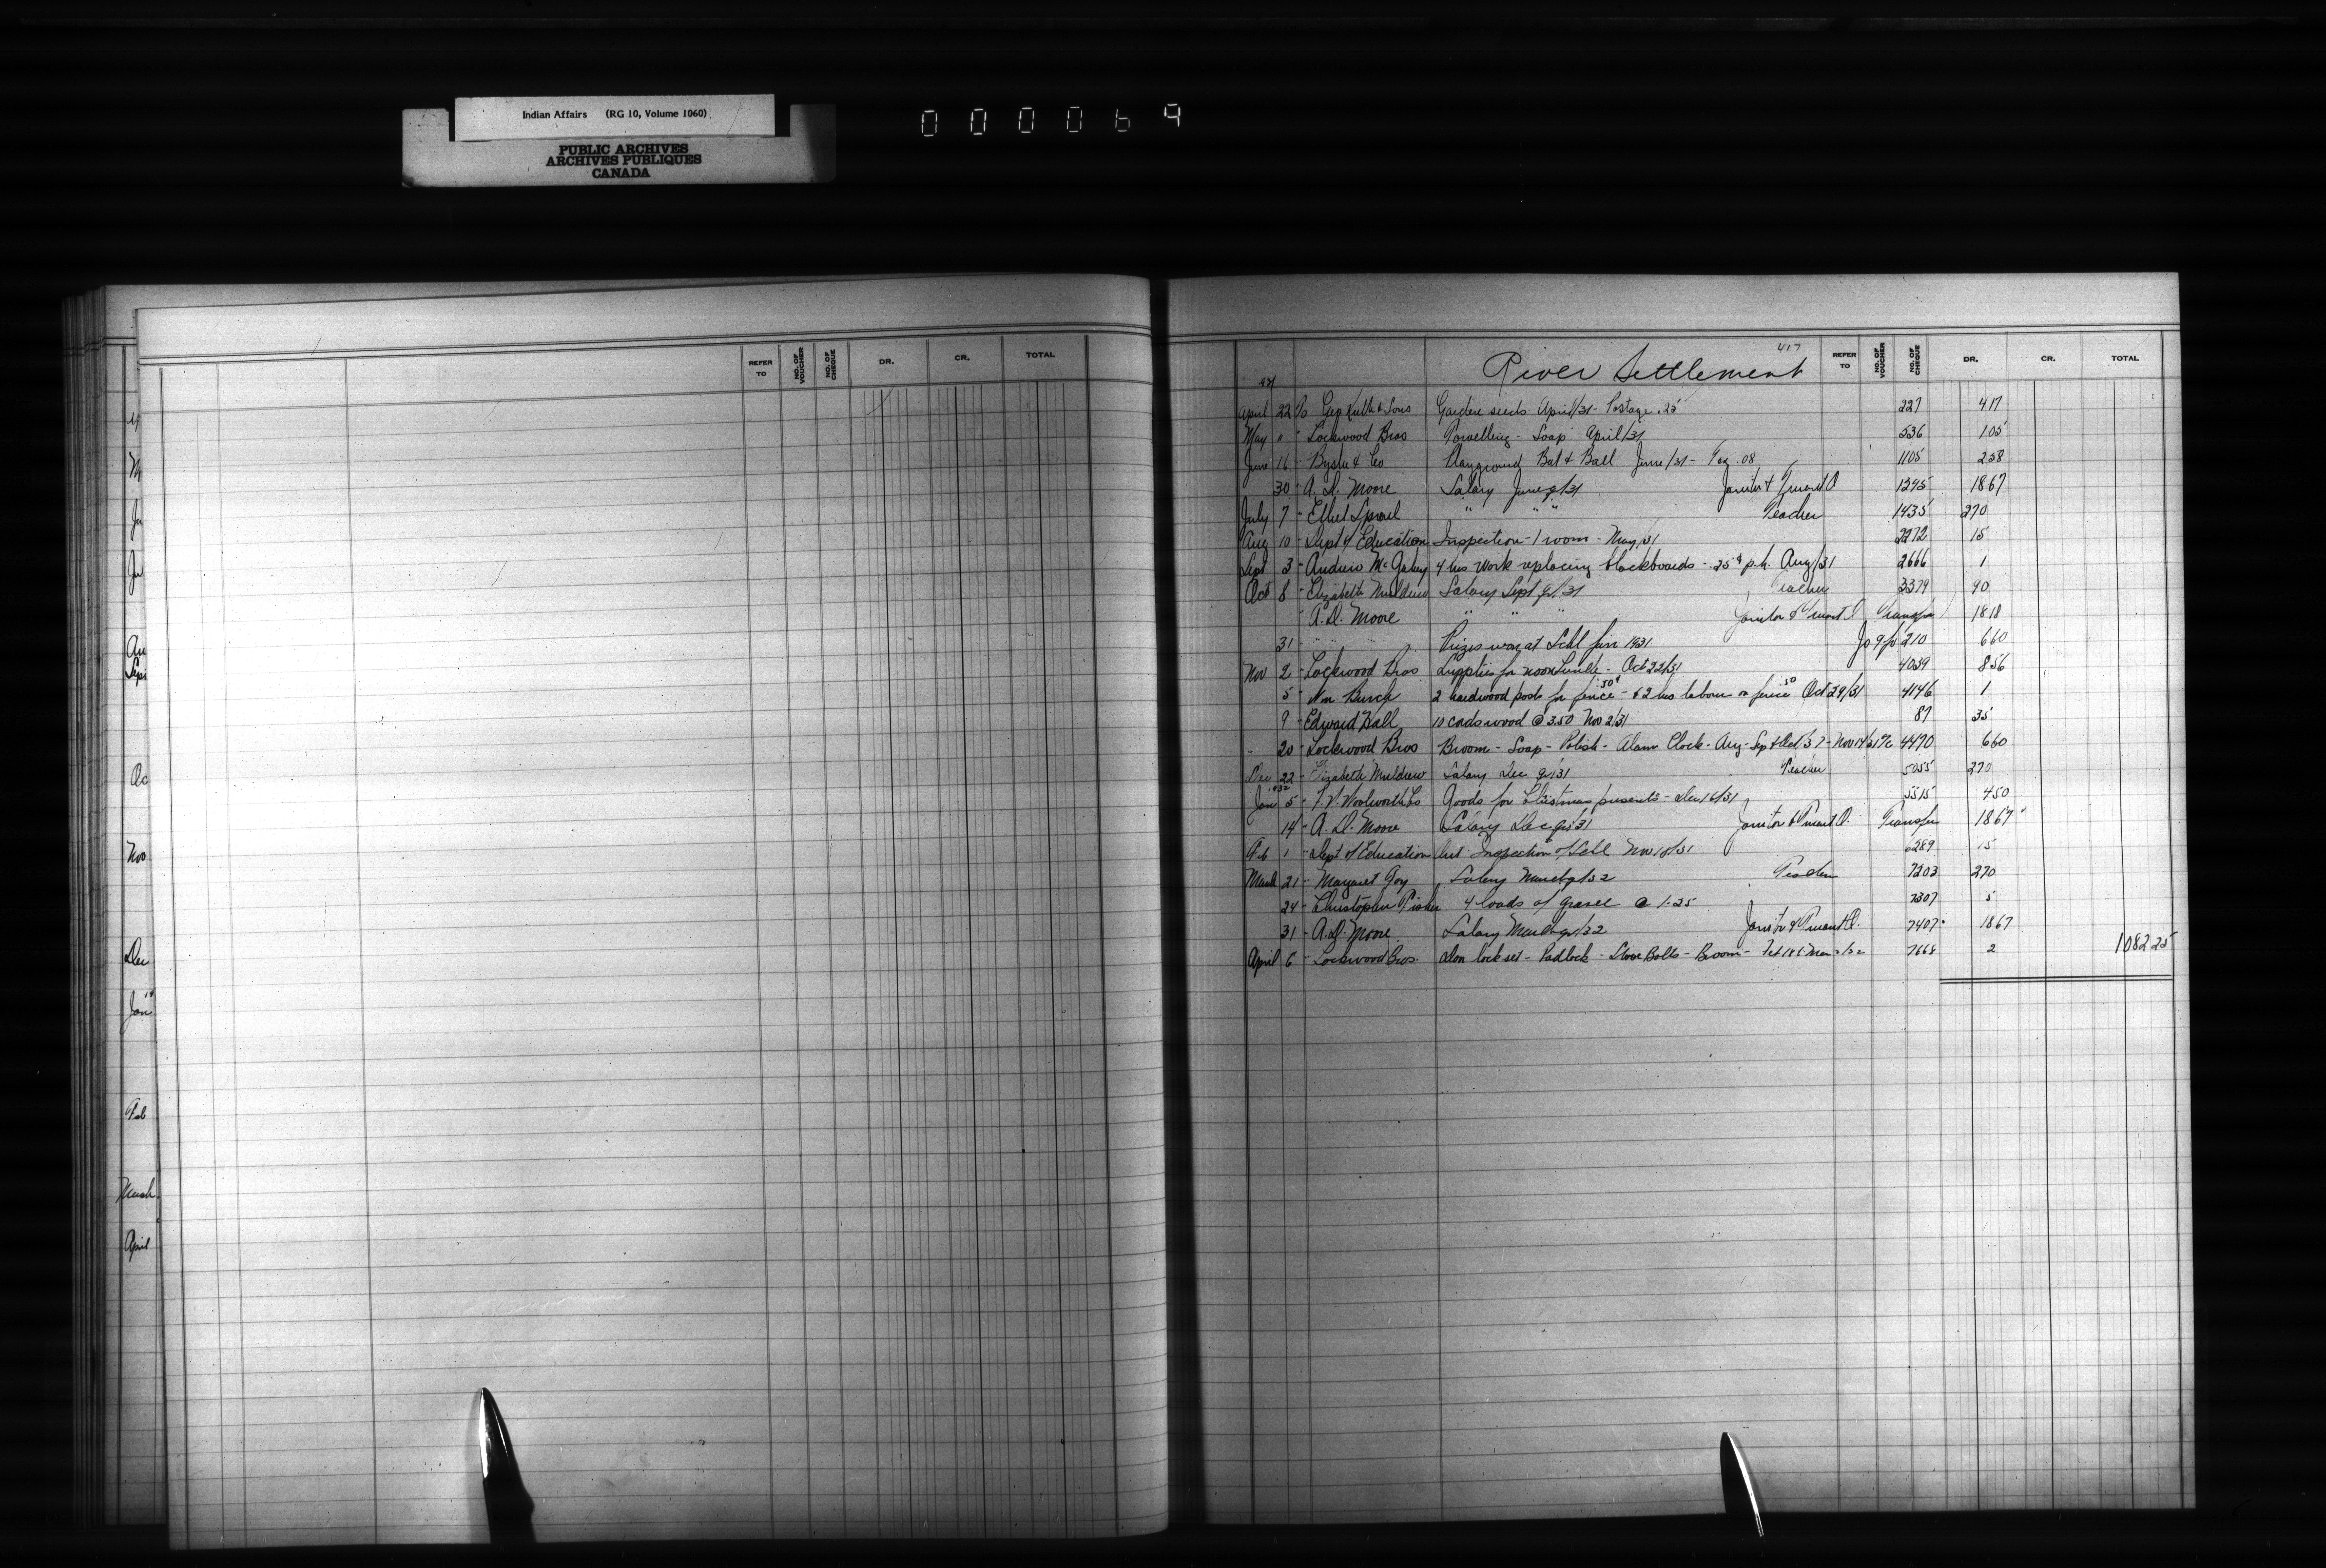 Indian Affairs (RG 10, Volume 1060)
PUBLIC ARCHIVES
ARCHIVES PUBLIQUES
CANADA
000069
REFER TO NO. OF VOUCHER NO. OF CHEQUE DR. CR. TOTAL
M
Ju
Ju
Au
Sept
Oc
Nov
Dec
Jan
Feb
March
April
417
River Settlement REFER TO NO. OF VOUCHER NO. OF CHEQUE DR. CR. TOTAL
April 22 To Geo Keith & Sons Gardene seeds April/31 - Postage .25 227 417
May " " Lockwood Bros Towelling - Soap April/31 536 105
June 16 " & Co Playground Bat & Ball June/31 - .08 1105 258
30 " A. D. Moore Salary June q/31 Janitor & Truant O 1295 1867
July 7 " Ethel " " " Teacher 1435 270
Aug 10 " Dept of Education Inspection - 1 room - May/31 2272 15
Sept 3 " Andrew 4 hrs work replacing blackboards - 25¢ p.h. Aug/31 2666 1
Oct 8 " Elizabeth Muldrew Salary Sept qr/31 Teacher 3379 90
" A. D. Moore " " " Janitor & Truant O Transfer 1818
31 " " Prizes won at Schl fair 1931 Jo 9 fo 210 660
Nov 2 " Lockwood Bros Supplies for noon Lunch - Oct 22/31 4039 856
5 " Wm Burch 2 hardwood posts for fence .50¢ - & 2 hrs labour on fence .50 Oct 29/31 4146 1
9 " Edward Hall 10 cords wood @ 3.50 Nov 2/31 87 35
20 " Lockwood Bros Broom - Soap - Polish - Alarm Clock - Aug - Sep & Oct/31 - Nov 14/31 4470 660
Dec 22 " Elizabeth Muldrew Salary Dec qr/31 Teacher 5055 270
1932
Jan 5 " F. W. Woolworth Co Goods for Christmas presents - Dec 16/31 5515 450
14 " A. D. Moore Salary Dec qr/31 Janitor & Truant O. Transfer 1867
Feb 1 " Dept of Education Inspection of Schl Nov 18/31 6289 15
March 21 " Margaret Salary March q/32 Teacher 7203 270
24 " Christopher 4 loads of gravel @ 1.25 7307 5
31 " A. D. Moore Salary March qr/32 Janitor & Truant O. 7407 1867
April 6 " Lockwood Bros. lock set - Padlock - Stove Bolts - Broom - 7668 2 1082 25